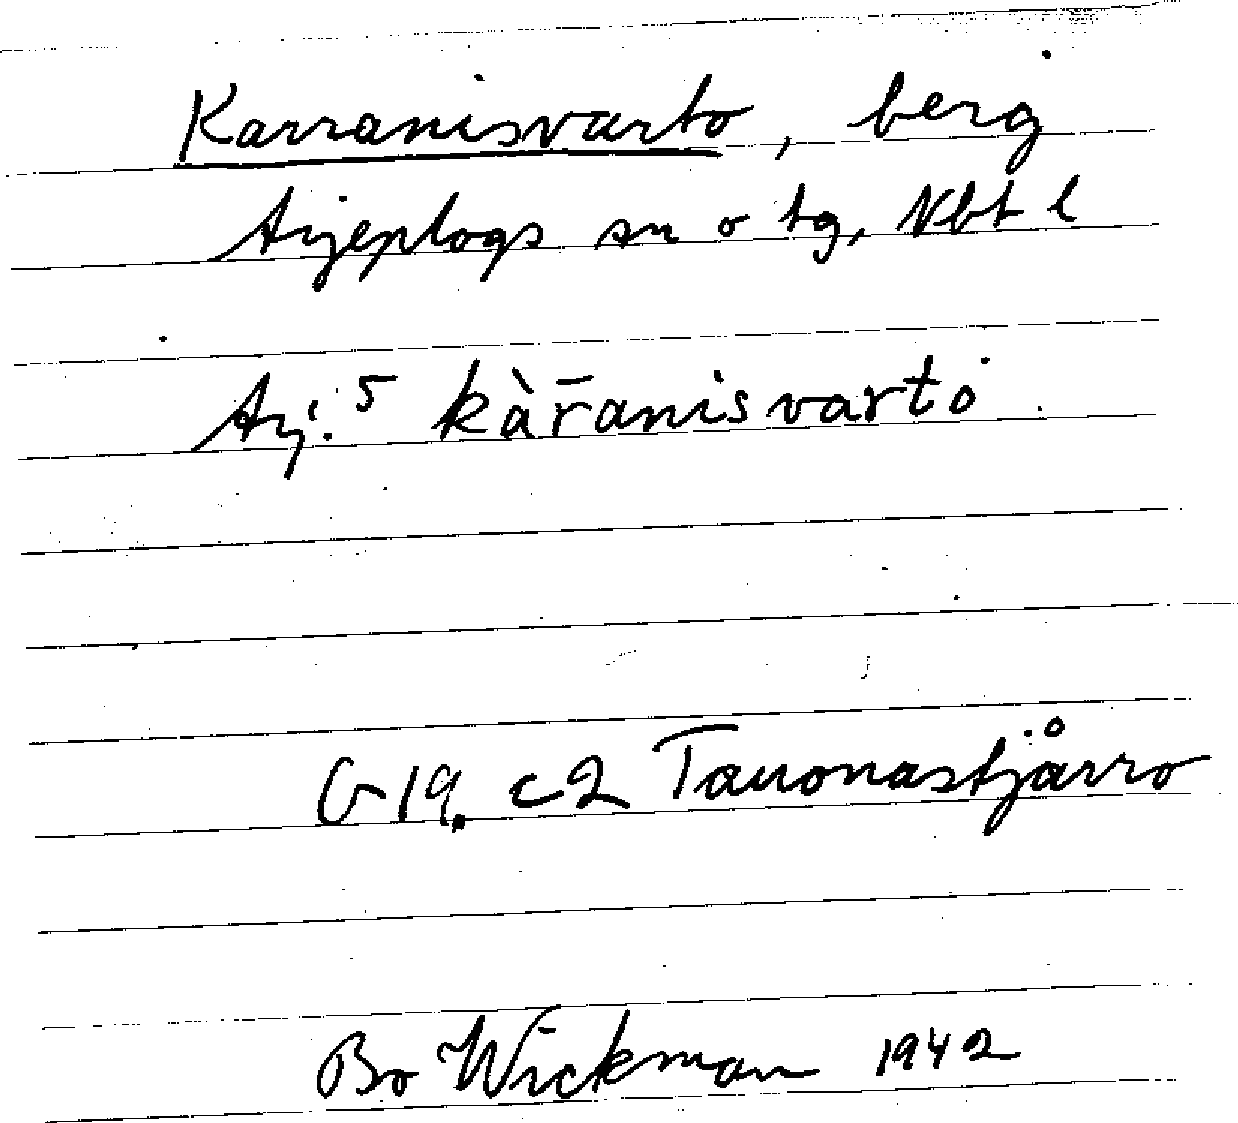 Karranisvarto, berg
Arjeplogs sn o tg, Nbt l
Arj. 5 kàr̄anisvarto
G 19. c2 Tauonastjårro
Bo Wickman 1942